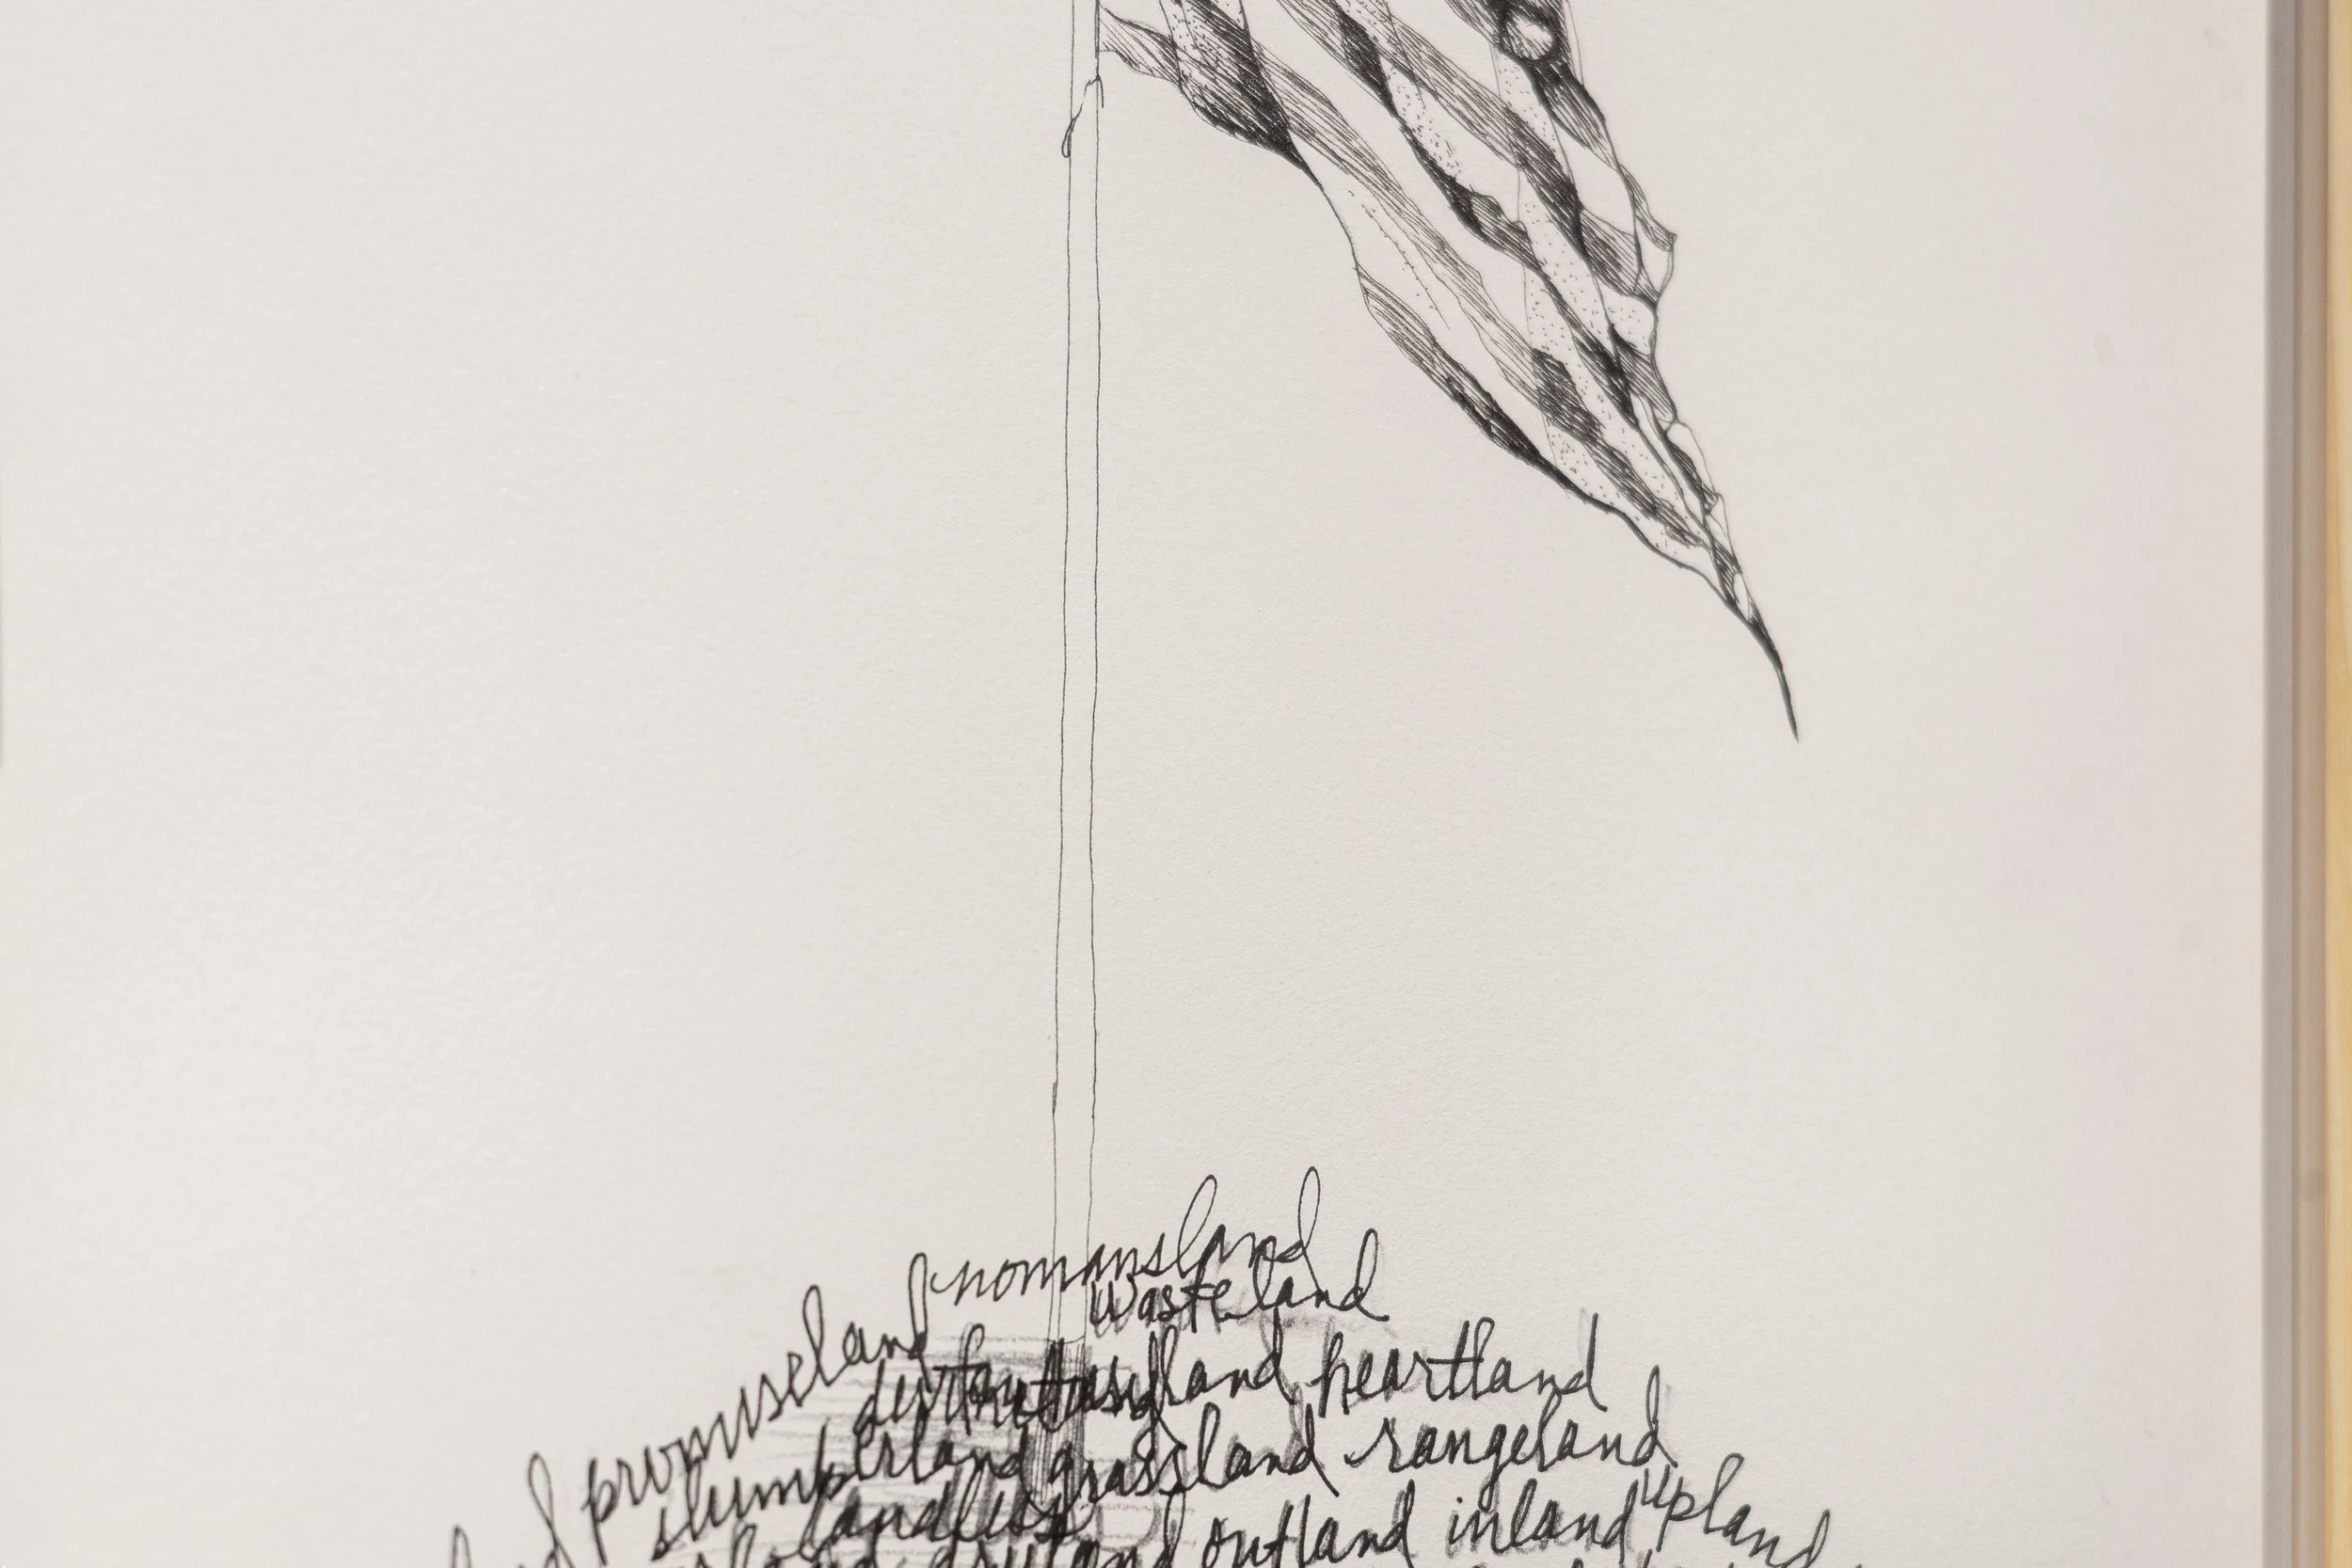 promiseland nomansland
wasteland
fantasyland heartland
slumberland grassland rangeland
landless
dryland outland inland upland